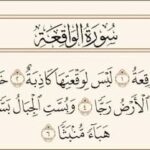 سُورَةُ الْوَاقِعَةِ
قِعَةُ ١ لَيْسَ لِوَقْعَتِهَا كَاذِبَةٌ ٢ خَ
الْأَرْضُ رَجًّا ٤ وَبُسَّتِ الْجِبَالُ بَسًّ
هَبَاءً مُّنْبَثًّا ٦